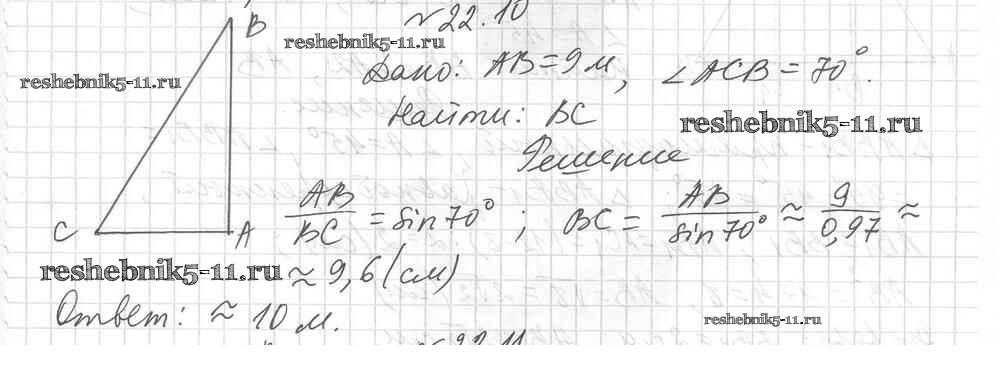 №22.10
B
reshebnik5-11.ru
reshebnik5-11.ru
Дано: AB = 9 м, ∠ACB = 70°.
Найти: BC
reshebnik5-11.ru
Решение
AB/BC = sin 70°; BC = AB/sin 70° ≈ 9/0,97 ≈
C A
reshebnik5-11.ru ≈ 9,6 (см)
Ответ: ≈ 10 м.
reshebnik5-11.ru